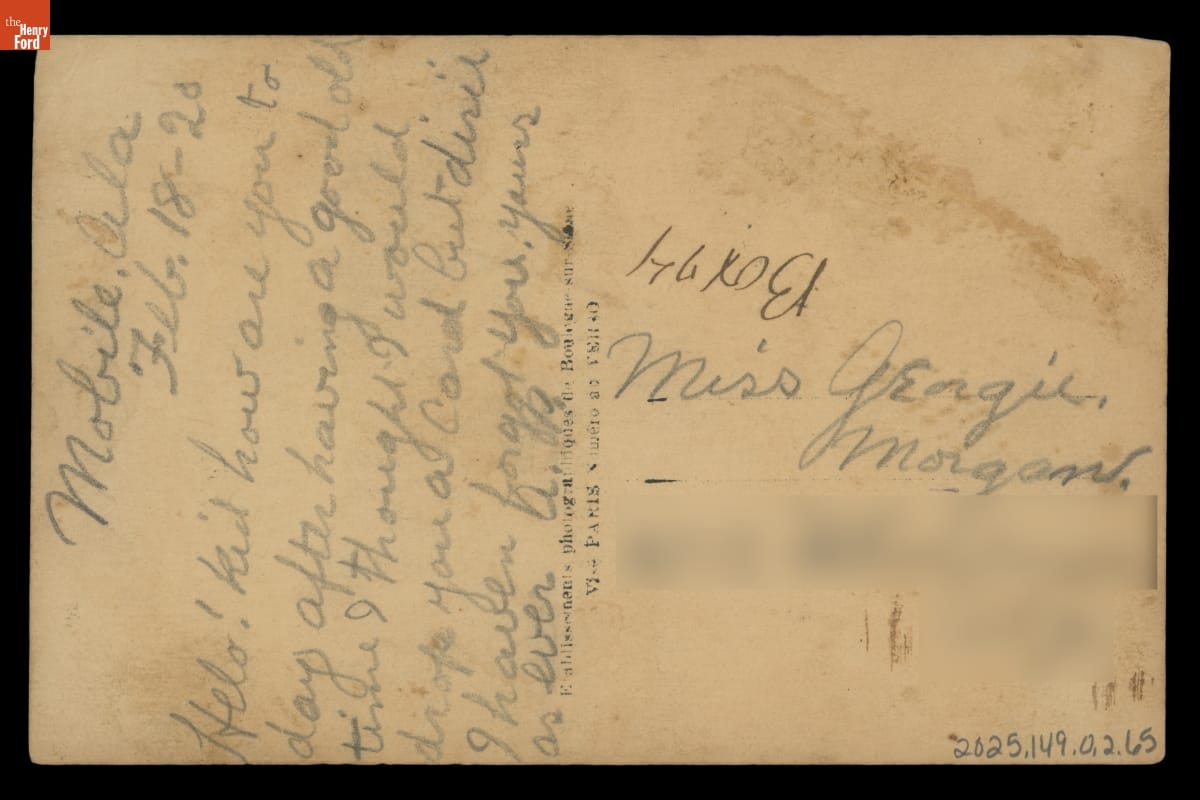 the
Henry
Ford
Mobile. Ala
Feb. 18-20
Helo! kid how are you to
day after having a good old
time I thought I would
drop you a Card but disié
I haven forgot you. yours
as ever
Etablissements photographiques de Boulogne-sur-Seine
Visé PARIS Numéro au VERSO
Box 74
Miss Georgie.
Morgan.
2025.149.0.2.65